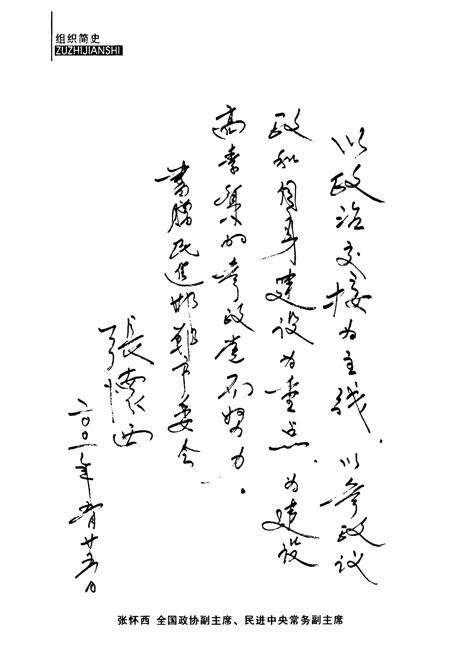 组织简史
ZUZHIJIANSHI
以政治交接为主线，以参政议
政和自身建设为重点，为建设
高素质的参政党而努力。
书赠民进邯郸市委会
張懷西
二〇〇一年 月廿 日
张怀西 全国政协副主席、民进中央常务副主席